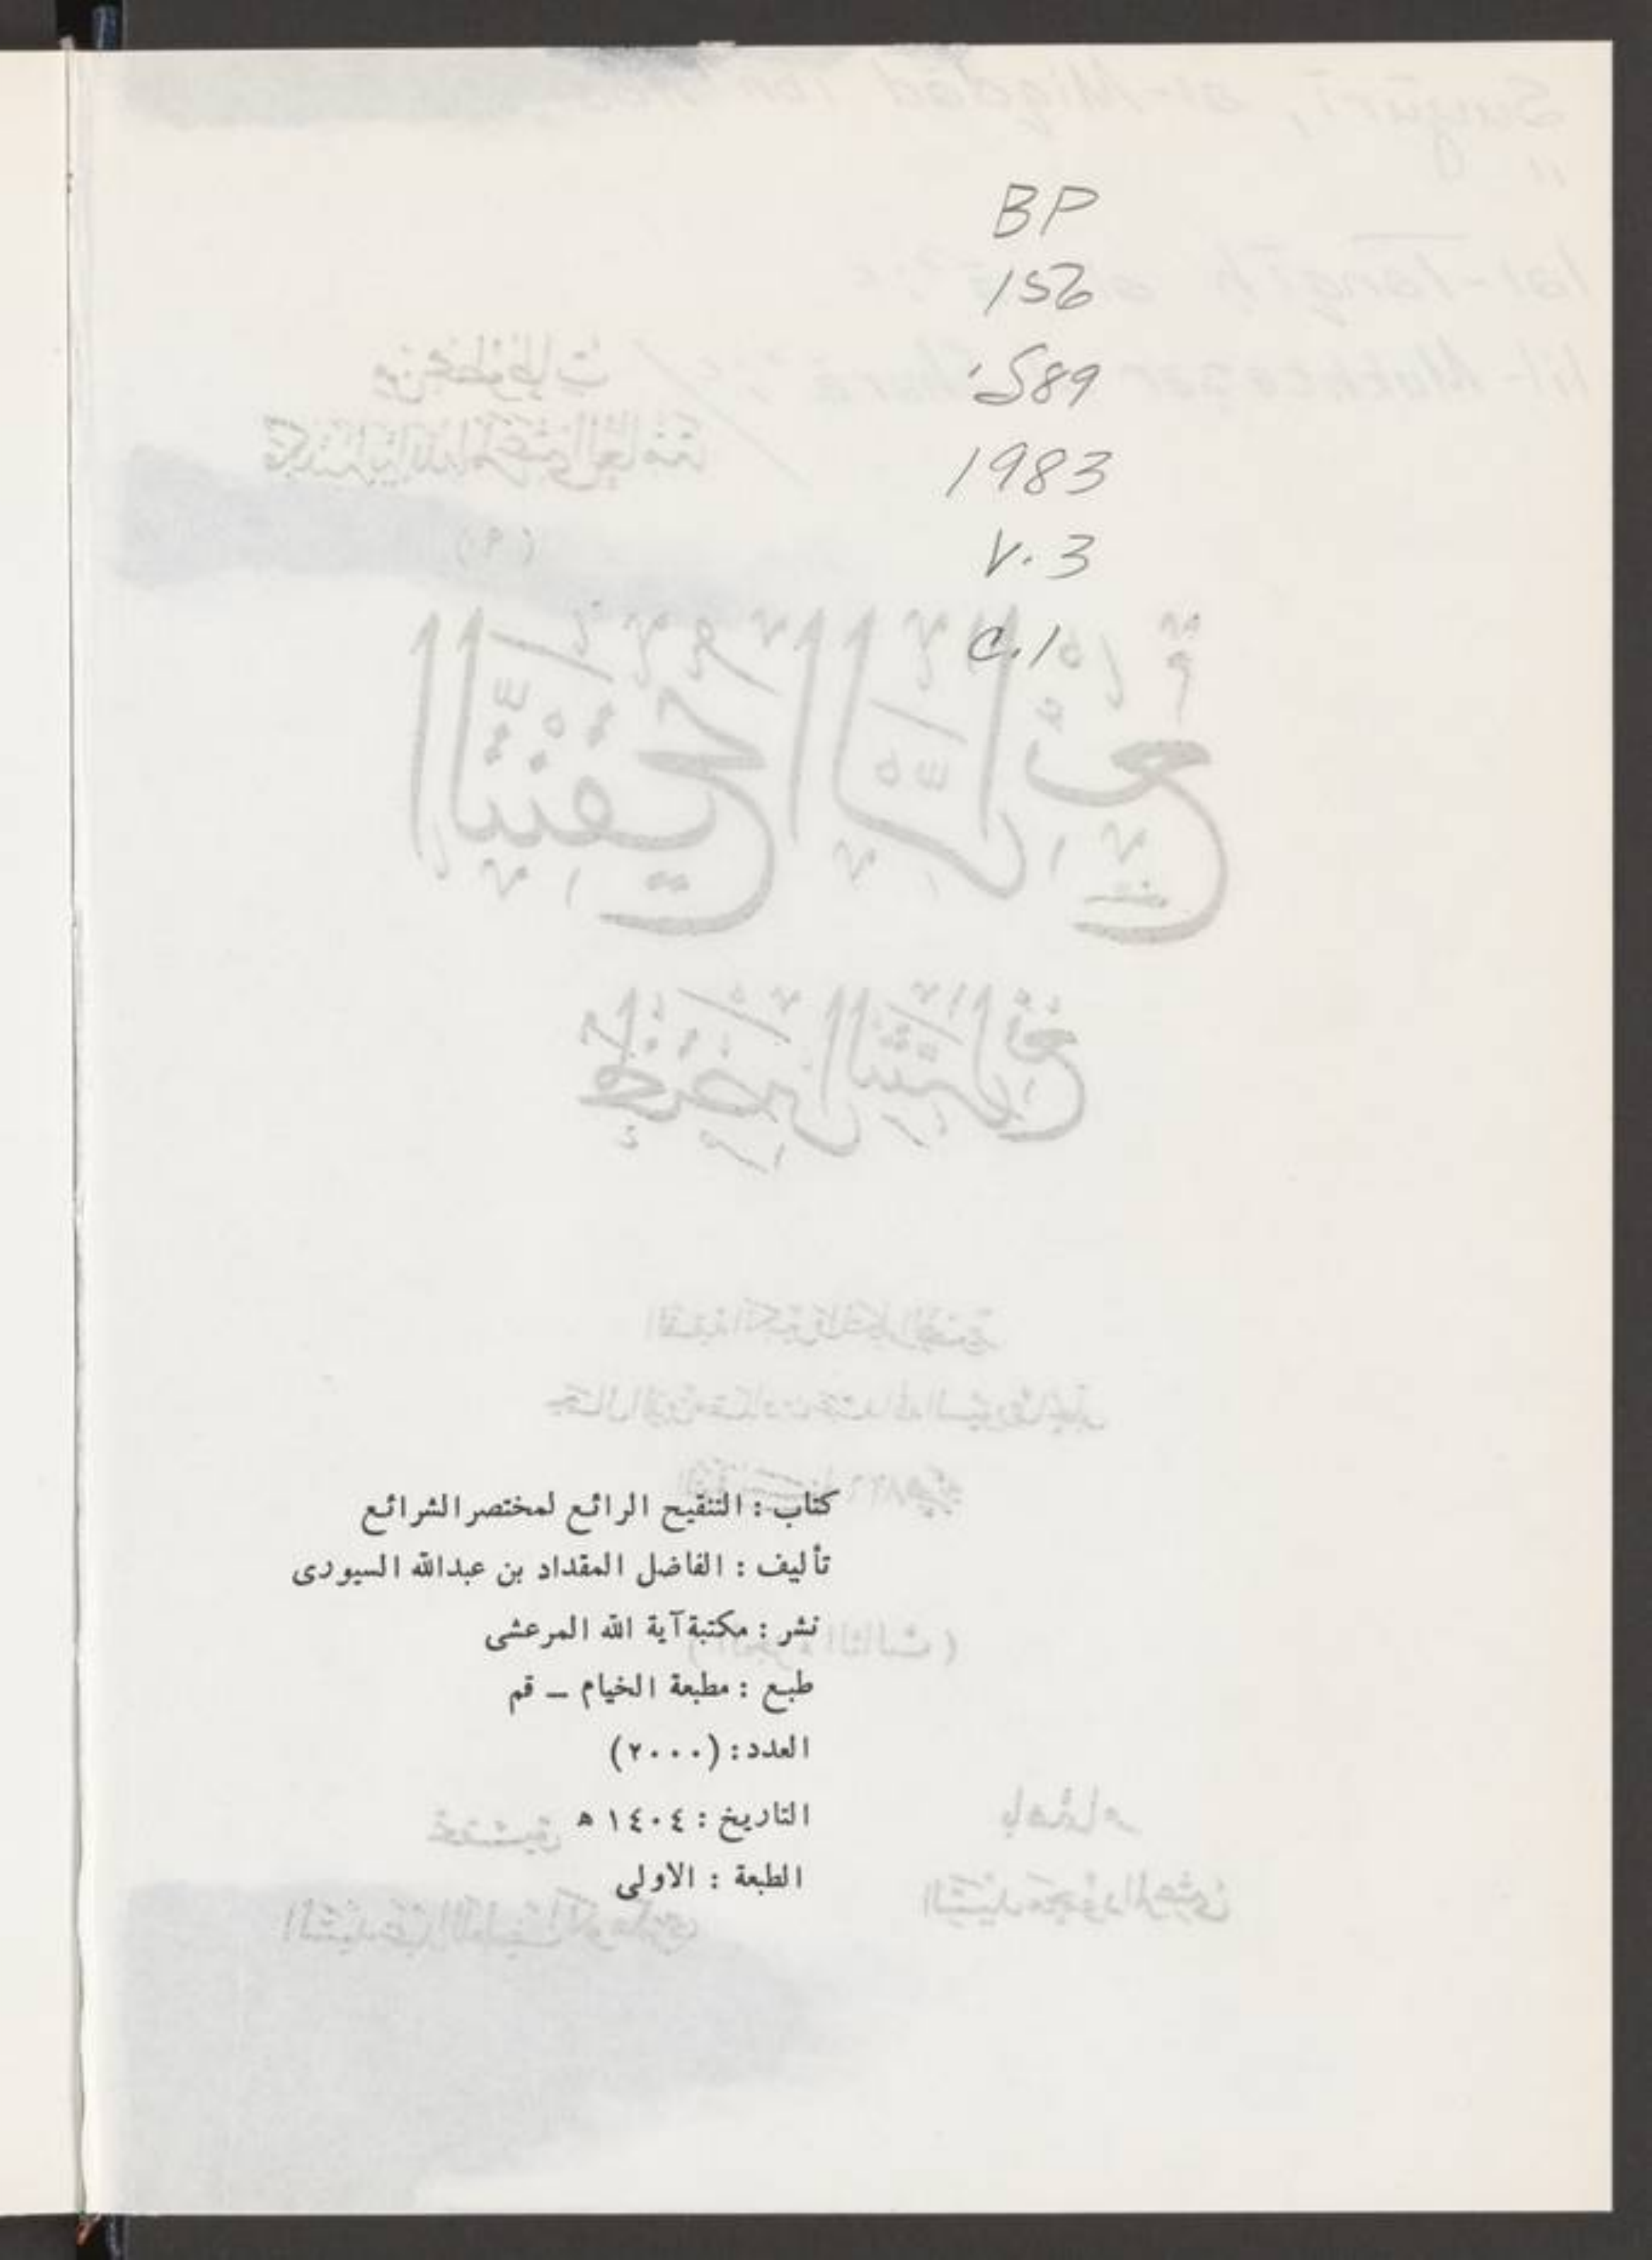 BP
156
.S89
1983
V.3
C.1
كتاب : التنقيح الرائع لمختصر الشرائع
تأليف : الفاضل المقداد بن عبدالله السيورى
نشر : مكتبة آية الله المرعشى
طبع : مطبعة الخيام – قم
العدد : (٢٠٠٠)
التاريخ : ١٤٠٤ ه
الطبعة : الاولى